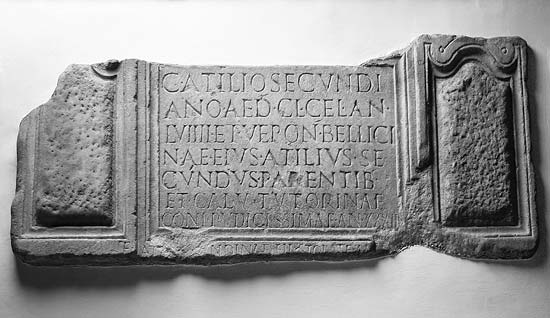 C ATILIO SECVNDI
ANO AED·CL·CEL·AN·
LVIIII ET VEPON BELLICI
NAE EIVS ATILIVS·SE
CVNDVS PARENTIB
ET CALV TVTORINAE
CON PVDICISSIMAE AN